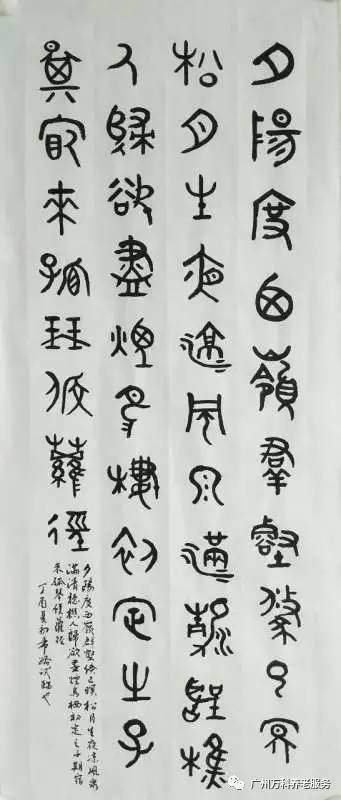 夕陽度西嶺群壑倏已冥
松月生夜涼風泉滿清聽樵
人歸欲盡煙鳥棲初定之子
期宿來孤琴候蘿徑
夕陽度西嶺群壑倏已暝松月生夜涼風泉
滿清聽樵人歸欲盡煙鳥棲初定之子期宿
來孤琴候蘿徑
丁酉夏初希
广州万科养老服务